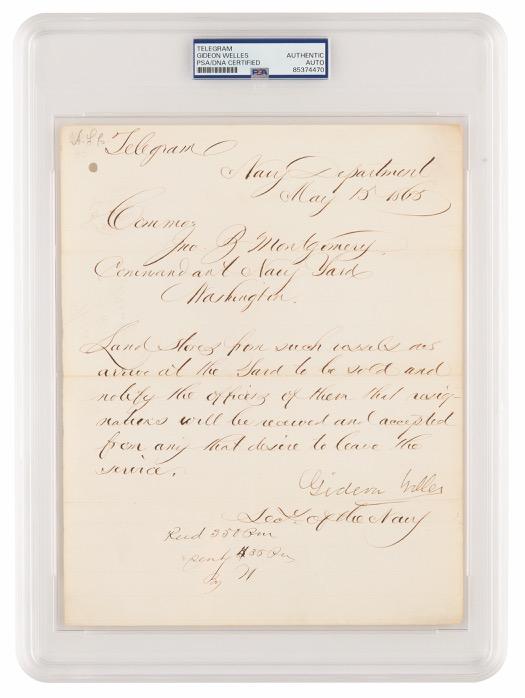 TELEGRAM
GIDEON WELLES
PSA/DNA CERTIFIED
AUTHENTIC
AUTO
85374470
PSA
Telegram
Navy Department
May 15 1865
Commo.
Jno. B Montgomery.
Commandant Navy Yard
Washington.
Land stores from such vessels as
arrive at the Yard to be sold and
notify the officers of them that resig-
nations will be received and accepted
from any that desire to leave the
service.
Gideon Welles
Secy. of the Navy
Recd 350 Pm
sent 435 Pm
By